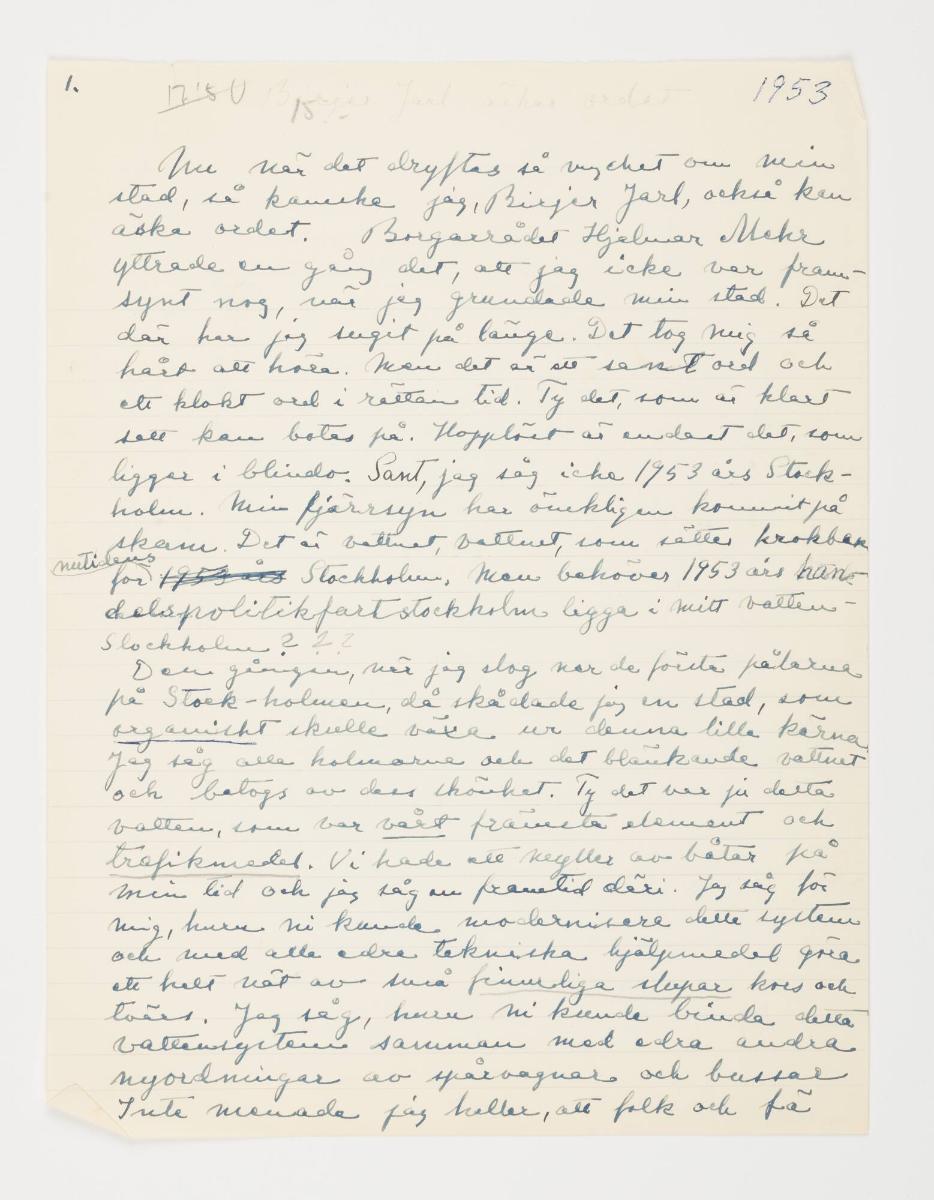 1.
1953
15
Birger Jarl äskar ordet
Nu när det dryftas så mycket om min
stad, så kanske jag, Birjer Jarl, också kan
äska ordet. Borgarrådet Hjalmar Mehr
yttrade en gång det, att jag icke var fram-
synt nog, när jag grundade min stad. Det
där har jag sugit på länge. Det tog mig så
hårt att höra. Men det är ett sant ord och
ett klokt ord i rättan tid. Ty det, som är klart
sett kan botas på. Hopplöst är endast det, som
ligger i blindo. Sant, jag såg icke 1953 års Stock-
holm. Min fjärrsyn har ömkligen kommit på
skam. Det är vattnet, vattnet, som sätter krokben
nutidens
för 1953 års Stockholm. Men behöver 1953 års han-
delspolitikfartstockholm ligga i mitt vatten-
Stockholm ? ? ?
Den gången, när jag slog ner de första pålarna
på Stock-holmen, då skådade jag en stad, som
organiskt skulle växa ur denna lilla kärna.
Jag såg alla holmarna och det blänkande vattnet
och betogs av dess skönhet. Ty det var ju detta
vatten, som var vårt främsta element och
trafikmedel. Vi hade ett myller av båtar på
min tid och jag såg en framtid däri. Jag såg för
mig, huru ni kunde modernisera detta system
och med alla edra tekniska hjälpmedel göra
ett helt nät av små finurliga slupar kors och
tvärs. Jag såg, huru ni kunde binda detta
vattensystem samman med edra andra
nyordningar av spårvagnar och bussar
Inte menade jag heller, att folk och fä